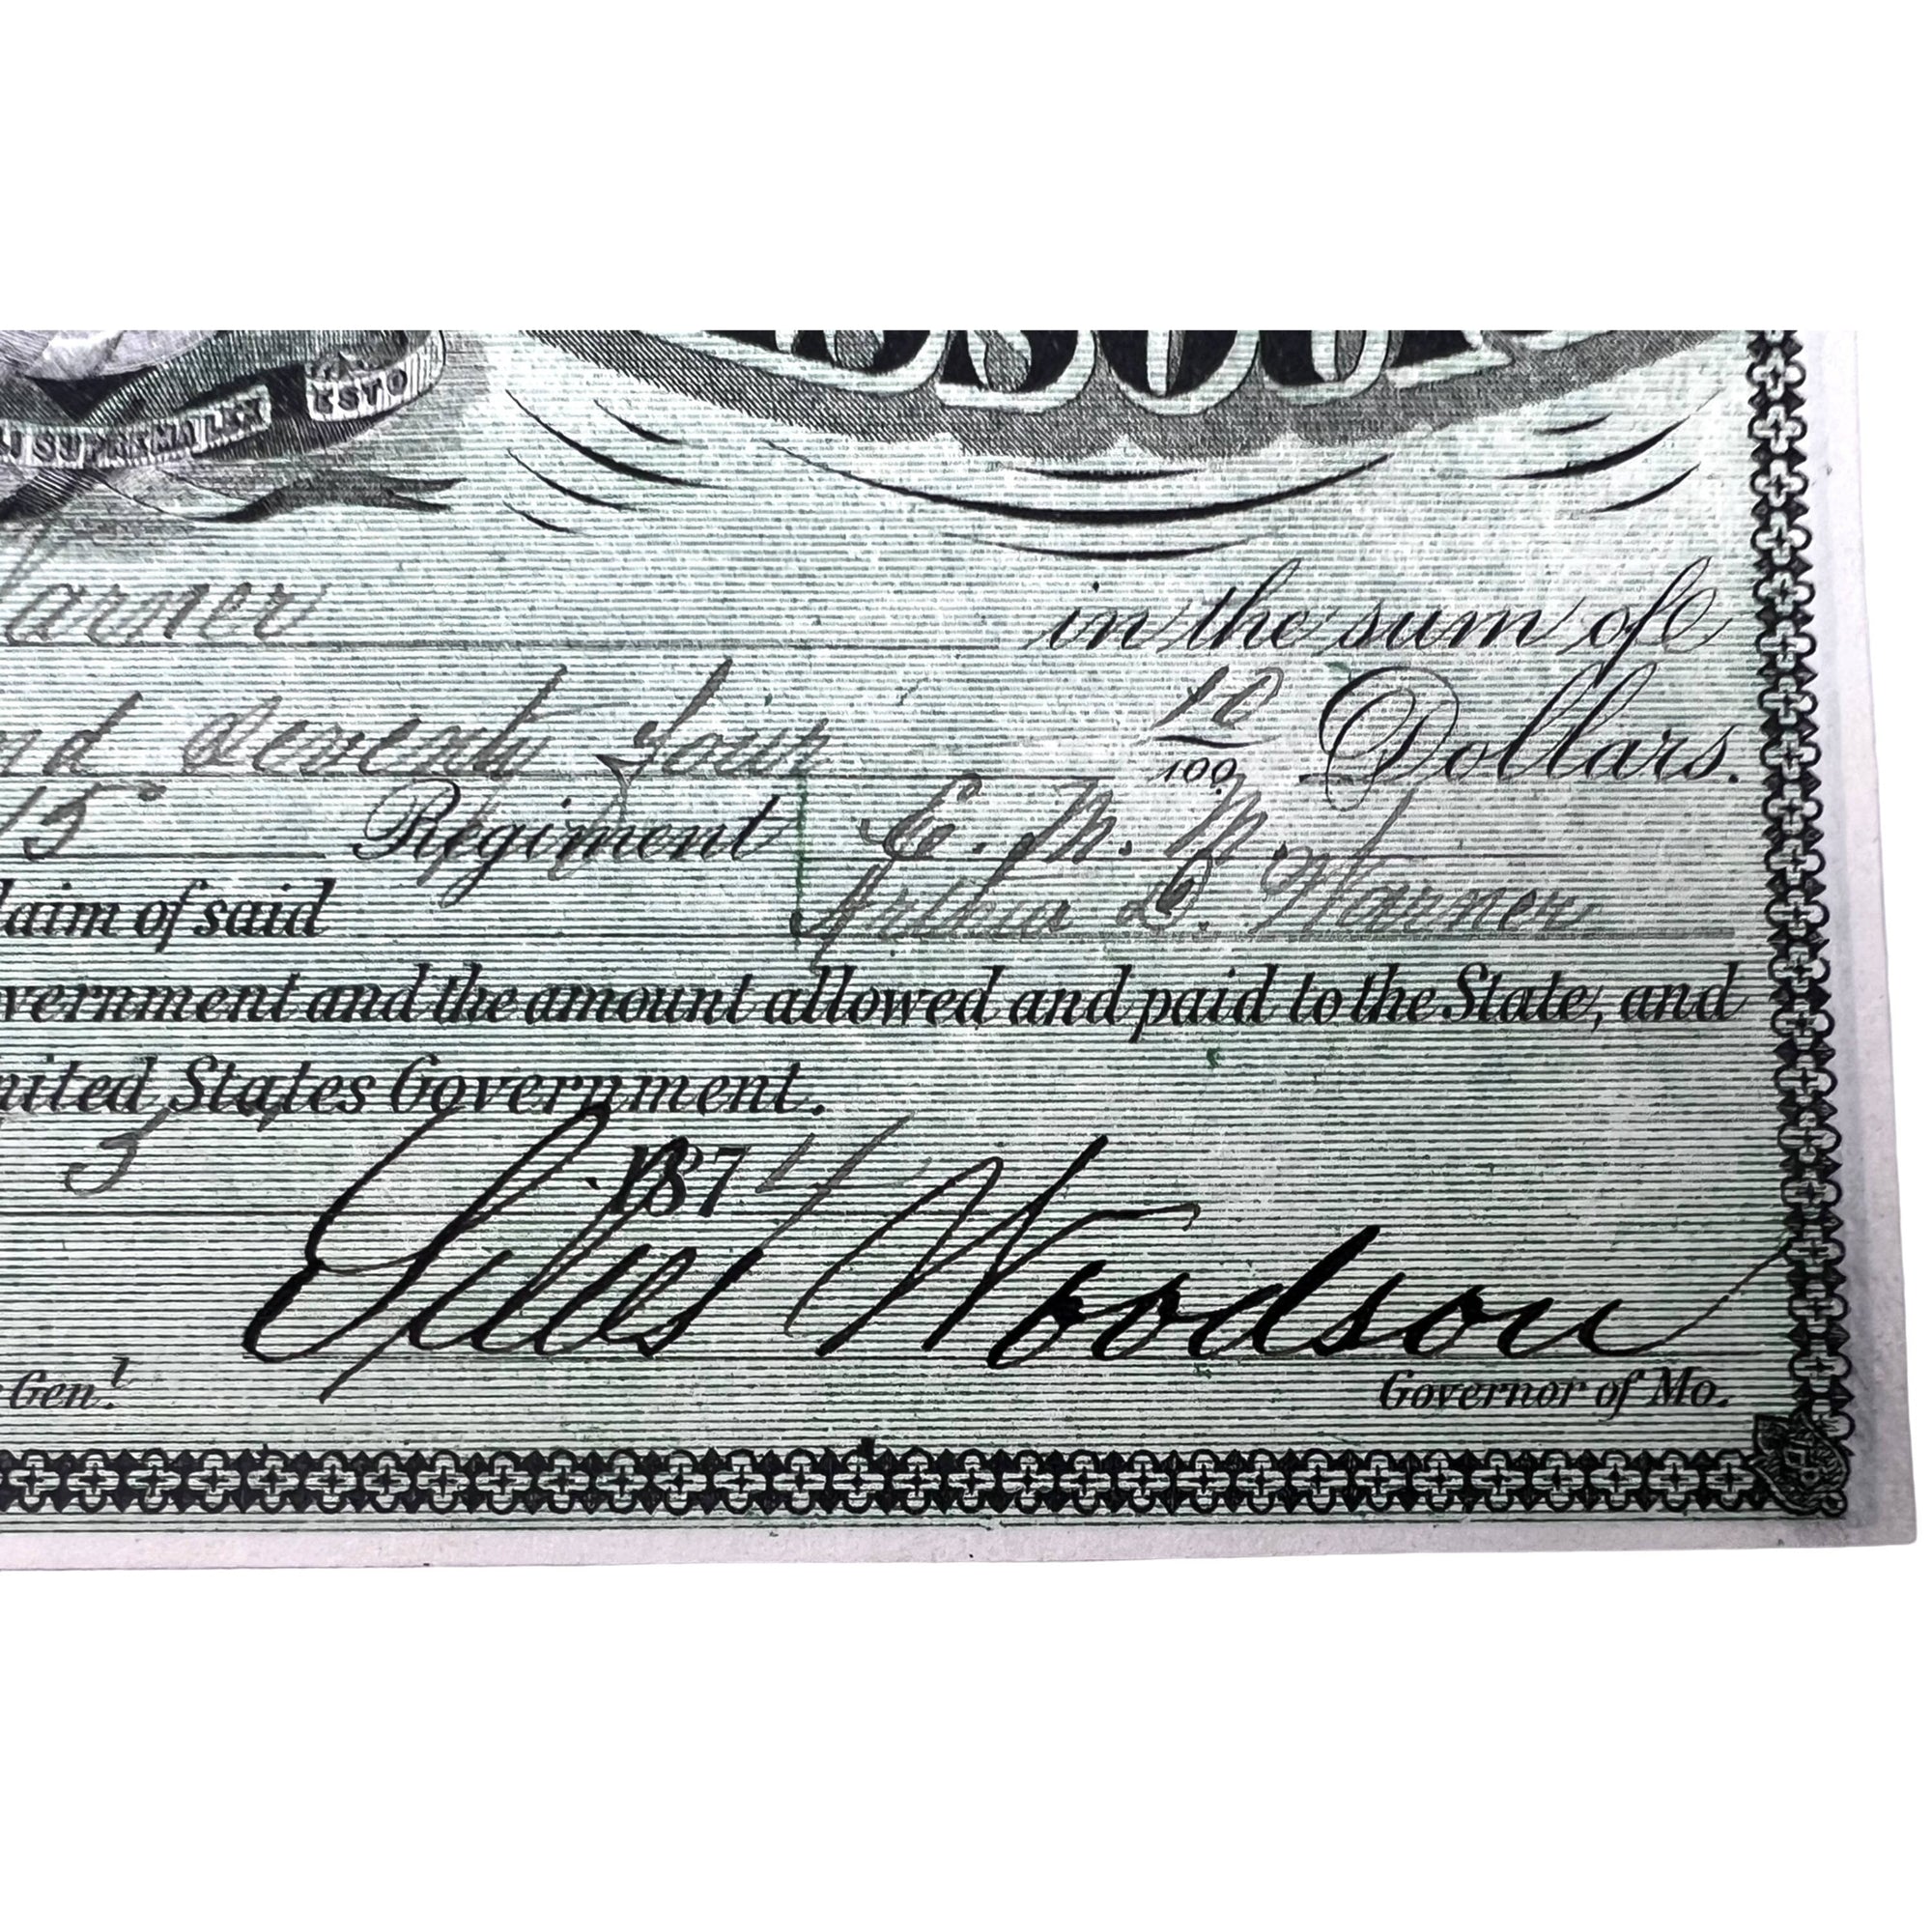 SUPREMA LEX ESTO
arner in the sum of
nd seventy four 10/100 Dollars.
15 Regiment E. M. M.
laim of said Arthur D. Warner
vernment and the amount allowed and paid to the State, and
nited States Government.
5 1874
Silas Woodson
Gen.l Governor of Mo.